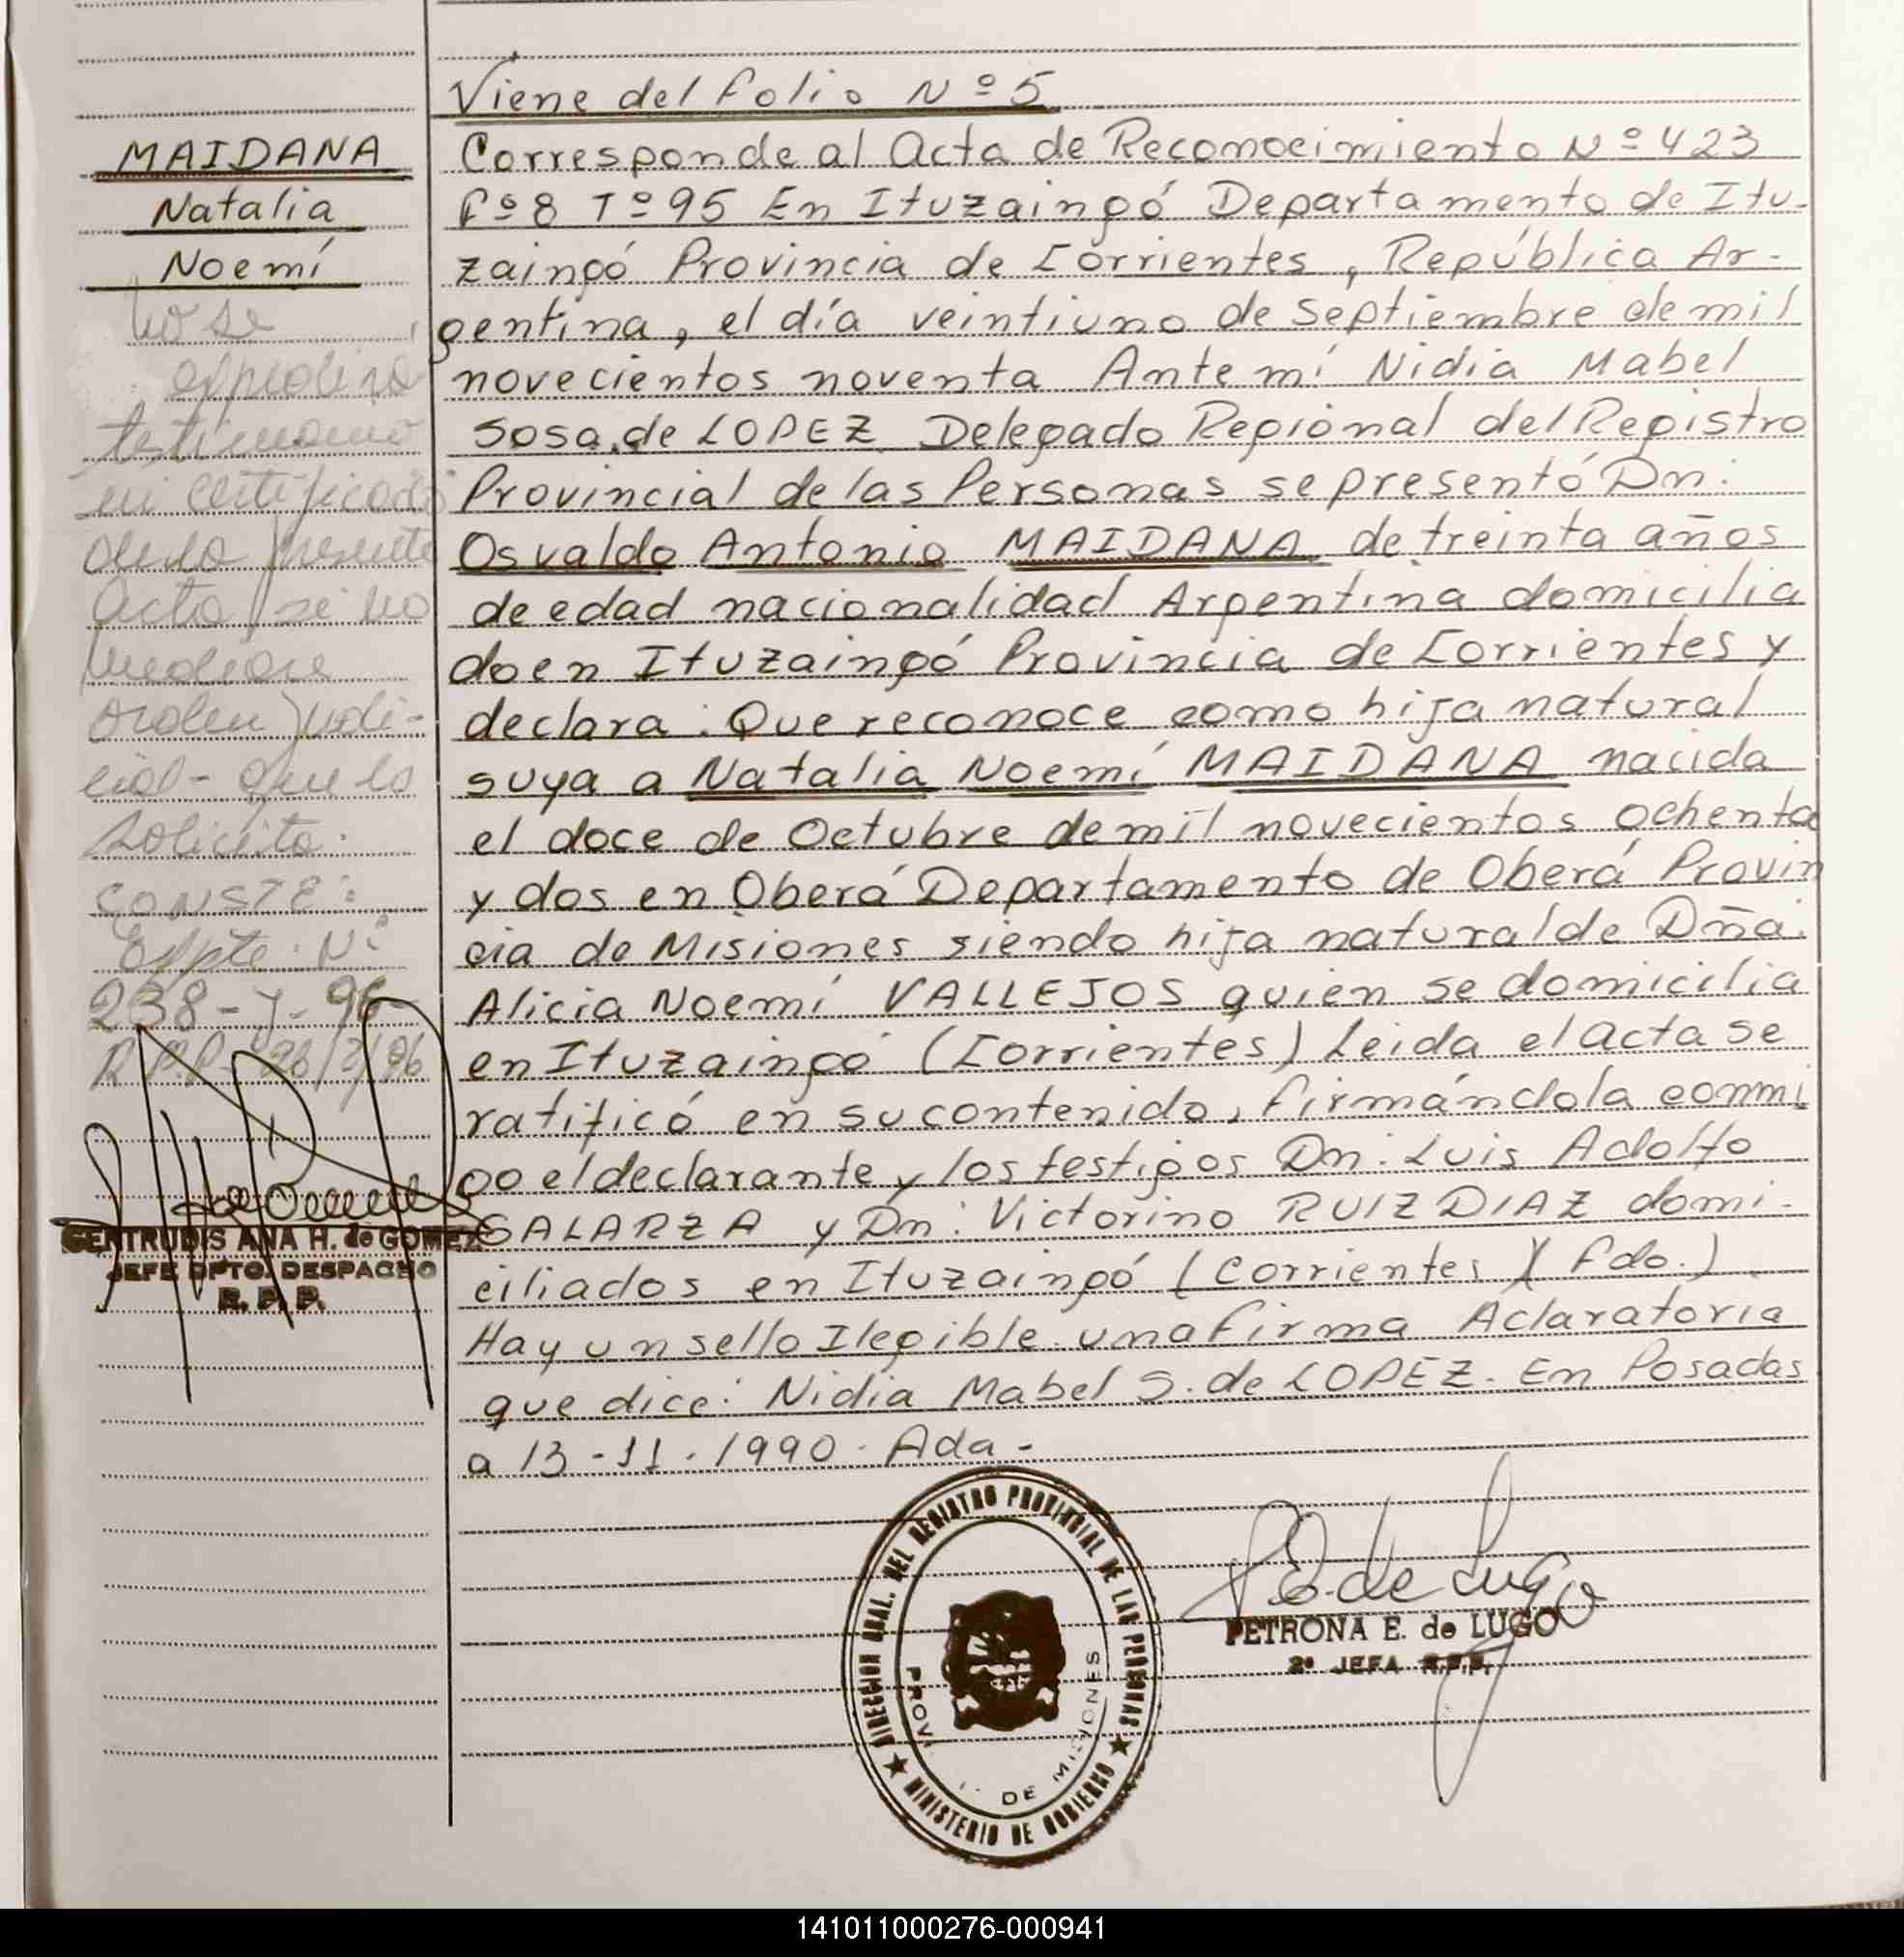 MAIDANA
Natalia
Noemí
No se
expedirá
testimonio
ni certificado
de la presente
Acta si no
mediare
orden judi-
cial - que lo
solicite.
CONSTE:
Expte. Nº
238-7-96
R.P.P.
GERTRUDIS ANA H. de GOMEZ
JEFE DPTO. DESPACHO
R. P. P.
Viene del folio Nº 5
Corresponde al Acta de Reconocimiento Nº 423
fº 8 Tº 95 En Ituzaingó Departamento de Itu-
zaingó Provincia de Corrientes, República Ar-
gentina, el día veintiuno de septiembre de mil
novecientos noventa Ante mí Nidia Mabel
Sosa de LOPEZ Delegado Regional del Registro
Provincial de las Personas se presentó Dn:
Osvaldo Antonio MAIDANA de treinta años
de edad nacionalidad Argentina domicilia
do en Ituzaingó Provincia de Corrientes y
declara: Que reconoce como hija natural
suya a Natalia Noemí MAIDANA nacida
el doce de Octubre de mil novecientos ochenta
y dos en Oberá Departamento de Oberá Provin
cia de Misiones siendo hija natural de Dña.
Alicia Noemí VALLEJOS quien se domicilia
en Ituzaingó (Corrientes) Leida el acta se
ratificó en su contenido, firmándola conmi
go el declarante y los testigos Dn: Luis Adolfo
SALARZA y Dn: Victorino RUIZ DIAZ domi-
ciliados en Ituzaingó (Corrientes)(fdo.)
Hay un sello Ilegible una firma Aclaratoria
que dice: Nidia Mabel S. de LOPEZ. En Posadas
a 13-11-1990. Ada-
DIRECCION GRAL. DEL REGISTRO PROVINCIAL DE LAS PERSONAS
PROV. DE MISIONES
MINISTERIO DE GOBIERNO
P E. de Lugo
PETRONA E. de LUGO
2ª JEFA R.P.P.
141011000276-000941